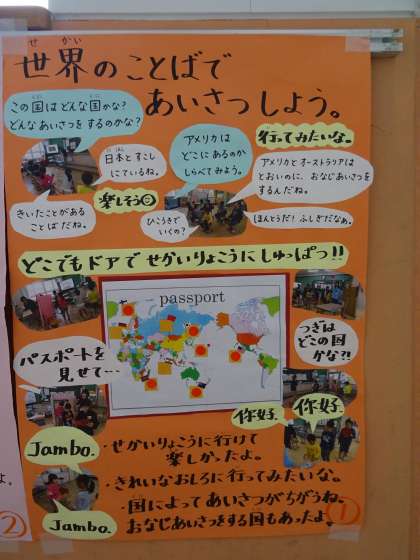 せかい
世界のことばで
あいさつしよう。
この国はどんな国かな?
どんなあいさつをするのかな?
アメリカは
どこにあるのか
しらべてみよう。
行ってみたいな。
日本とすこし
にているね。
アメリカとオーストラリアは
とおいのに、おなじあいさつを
するんだね。
楽しそう
きいたことがある
ことばだね。
ひこうきで
いくの?
ほんとうだ!ふしぎだなぁ。
どこでもドアでせかいりょこうにしゅっぱつ!!
passport
つぎは
どこの国
かな?!
パスポートを
見せて…
你好.
你好.
Jambo.
・せかいりょこうに行けて
楽しかったよ。
・きれいなおしろに行ってみたいな。
・国によってあいさつがちがうね。
Jambo.
おなじあいさつをする国もあったよ。
①
②
よ。